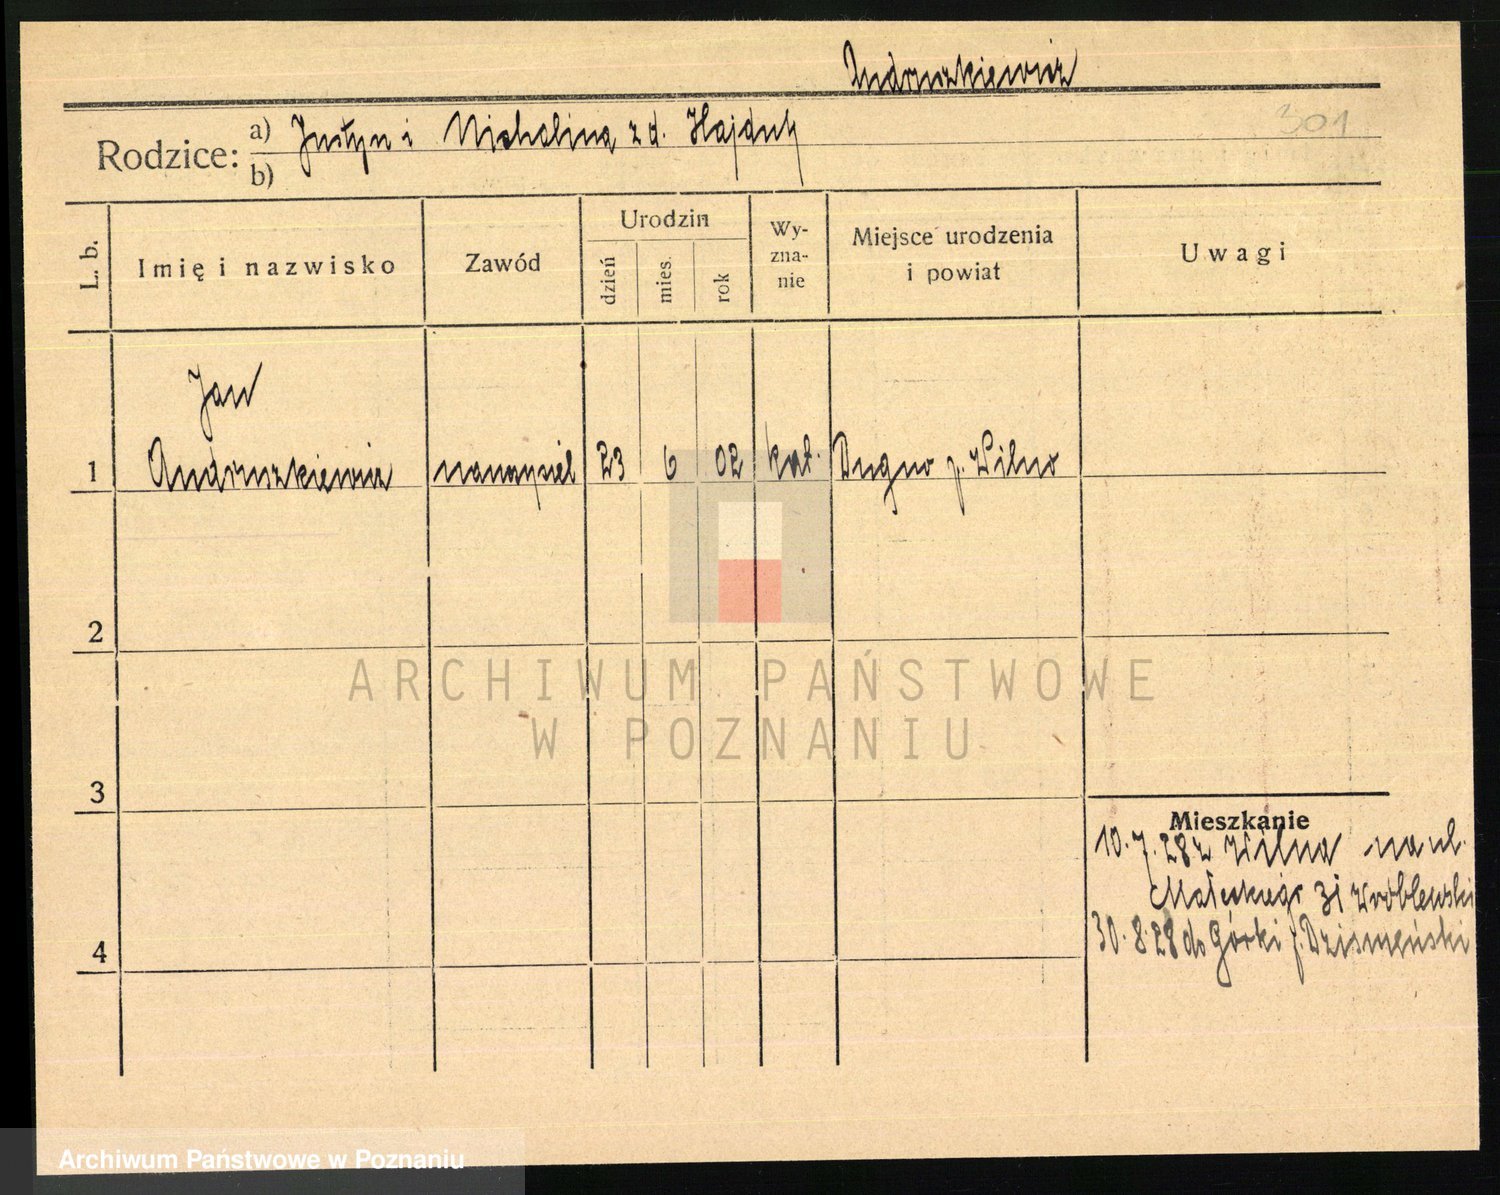 Andruszkiewicz
301
Rodzice: a) Justyn i Michalina z d. Hajduk
b)
L. b.
Imię i nazwisko
Zawód
Urodzin
dzień
mies.
rok
Wy-
zna-
nie
Miejsce urodzenia
i powiat
Uwagi
Jan
1 Andruszkiewicz nauczyciel 23 6 02 kat. p. Wilno
2
3
4
ARCHIWUM PAŃSTWOWE
W POZNANIU
Mieszkanie
10.7.28 z Wilna na ul.
Małeckiego 31 Wróblewski
30.8.28 do Górki p. Dzisneński
Archiwum Państwowe w Poznaniu